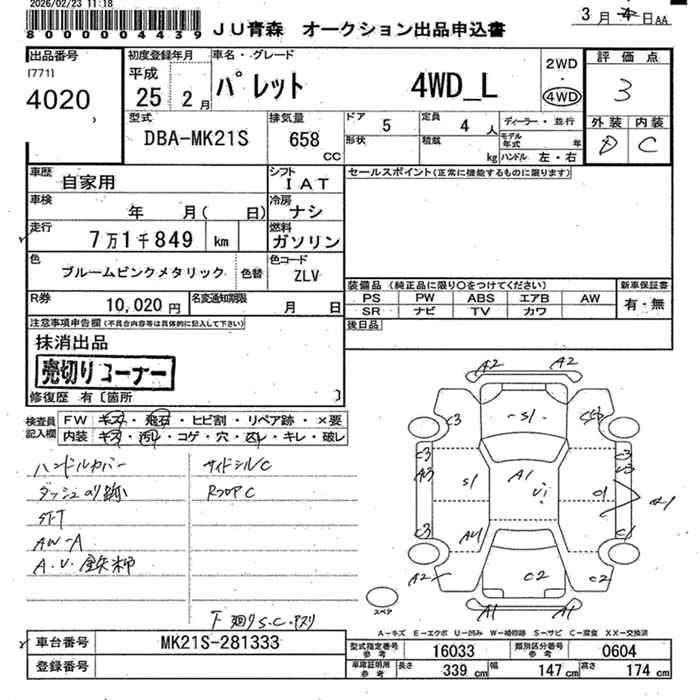 2026/02/23 11:18
8000004439
JU青森 オークション出品申込書
3月 AA
出品番号
[771]
4020
初度登録年月
平成
25 2月
車名・グレード
パレット 4WD_L
2WD
・
4WD
評価点
3
外装 内装
D C
型式
DBA-MK21S
排気量
658
CC
ドア
5
定員
4 人
ディーラー・並行
形状
積載
kg
モデル年式 年
ハンドル 左・右
車歴
自家用
シフト
IAT
セールスポイント(正常に機能するものに限ります)
車検
年 月( 日)
冷房
ナシ
走行
7万1千849 km
燃料
ガソリン
色
ブルームピンクメタリック 色替
色コード
ZLV
装備品 (純正品に限り〇をつけてください)
新車保証書
PS PW ABS エアB AW
SR ナビ TV カワ
有・無
R券
10,020円
名変通知期限
月 日
後日品
注意事項申告欄(不具合内容等は具体的に記入して下さい)
抹消出品
売切りコーナー
修復歴 有〔箇所 〕
検査員記入欄
FW キズ・飛石・ヒビ割・リペア跡・×要
内装 キズ・汚れ・コゲ・穴・凹レ・キレ・破レ
ハンドルカバー
サイドシルC
ダッシュのり跡
RフロアC
ST-T
AW-A
下廻りS.C.
A2 A2
C3 S1
C3 C3
A3 S1 A1 C3
C1 A1
C3 C1
A2 C2 C2
A1 A1
スペア
A-キズ E-エクボ U-凹み W-補修跡 S-サビ C-腐食 XX-交換済
車台番号
MK21S-281333
登録番号
型式指定番号
参考
16033
類別区分番号
参考
0604
車庫証明用
参考
長さ 339 cm 幅 147 cm 高さ 174 cm